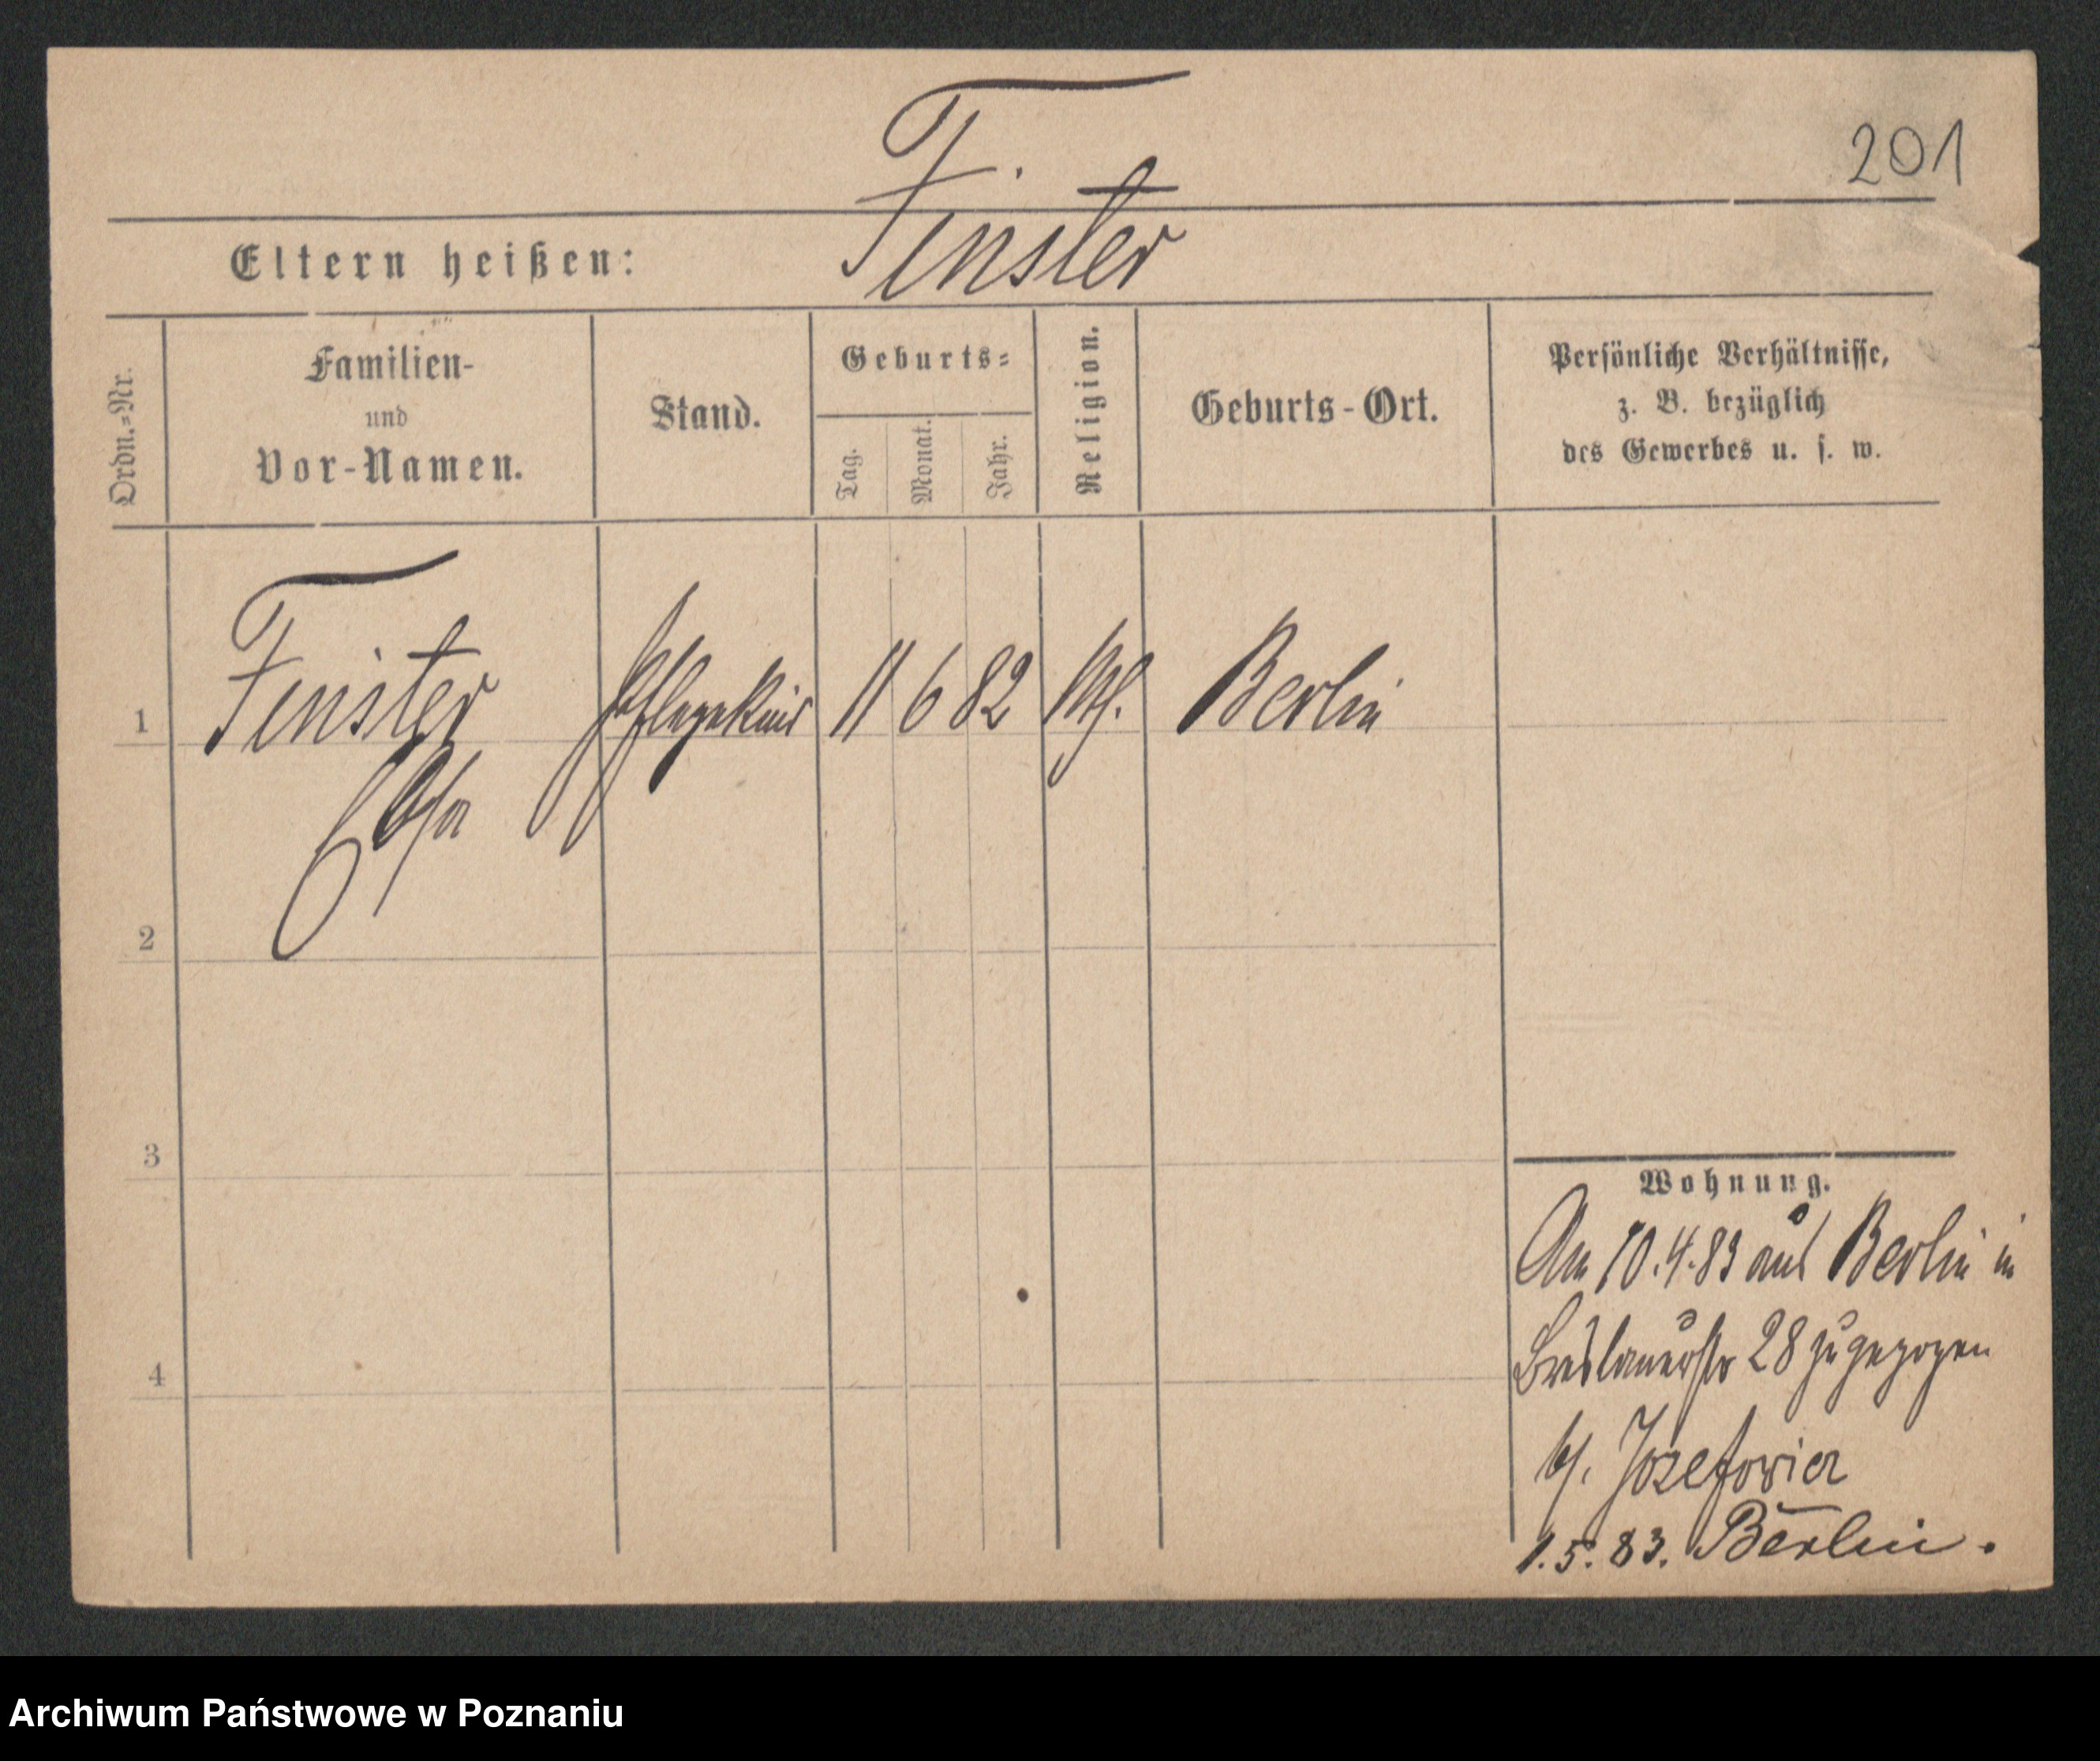 201
Finster
Eltern heißen:
Ordn.=Nr.
Familien-
und
Vor-Namen.
Stand.
Geburts=
Tag.
Monat.
Jahr.
Religion.
Geburts-Ort.
Persönliche Verhältnisse,
z. B. bezüglich
des Gewerbes u. s. w.
1 Finster Pflegekind 11 6 82 Berlin
2
3
4
Wohnung.
Am 10.4.83 aus Berlin in
Breslauerstr 28 zugezogen
b/. Jozefowicz
1.5.83. Berlin.
Archiwum Państwowe w Poznaniu